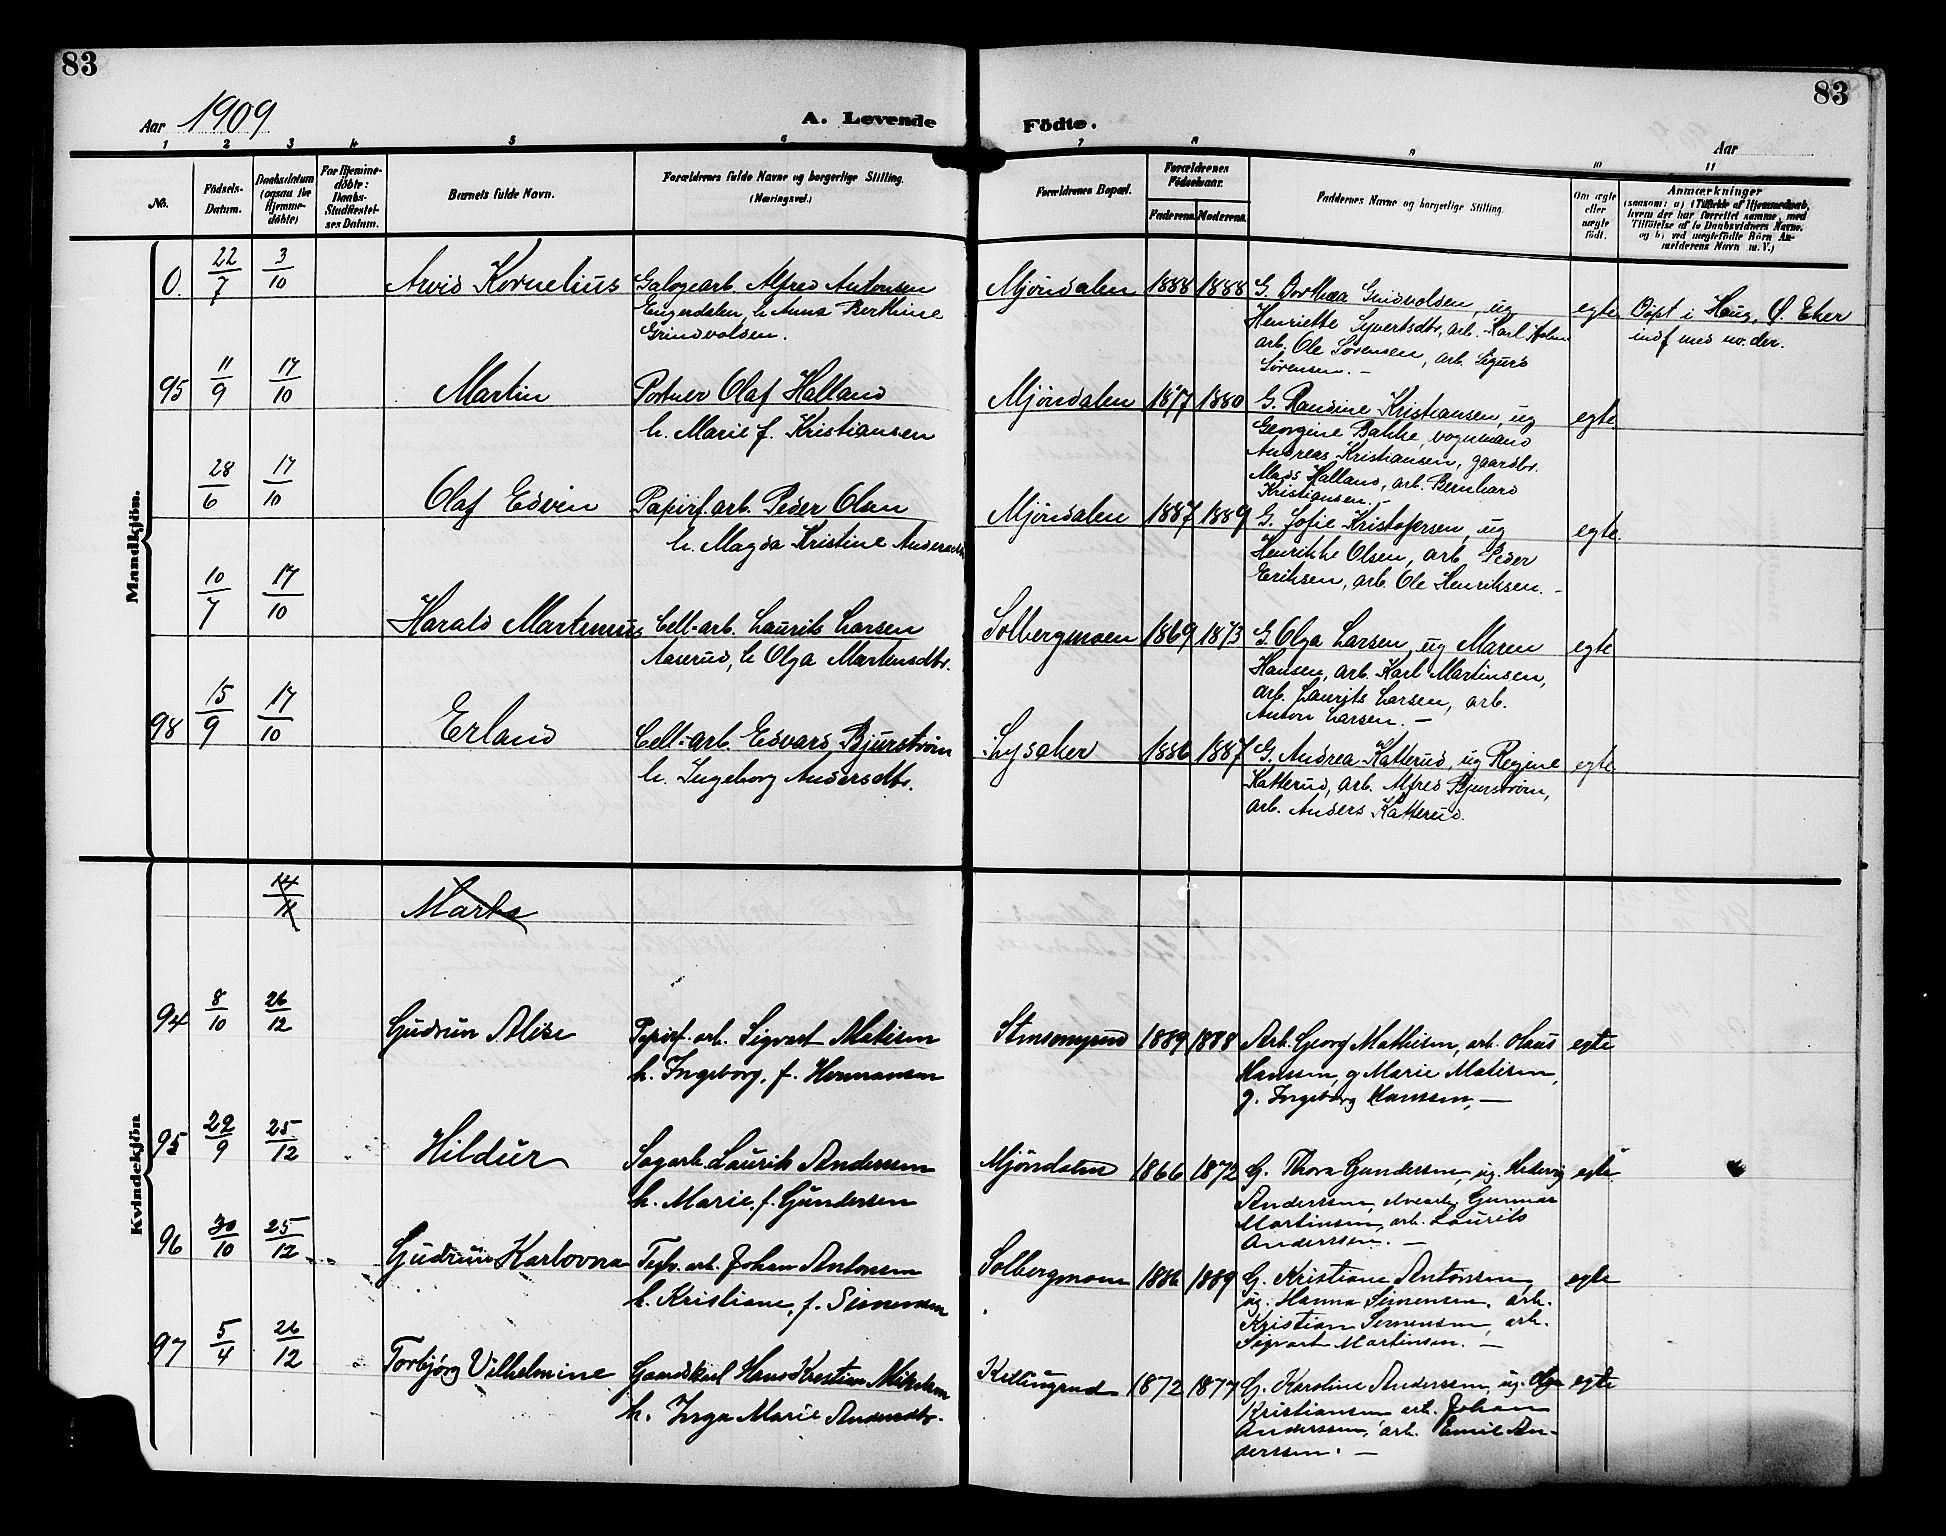 83
83
Aar 1909
A. Levende Födte.
Aar
1 2 3 4 5 6 7 8 9 10 11
No.
Födsels-Datum.
Daabsdatum (ogsaa for Hjemmedöbte)
For Hjemmedöbte: Daabs-Stadfæstelses Datum.
Barnets fulde Navn.
Forældrenes fulde Navne og borgerlige Stilling.
(Næringsvei.)
Forældrenes Bopæl.
Forældrenes Födselsaar.
Faderens. Moderens.
Faddernes Navne og borgerlige Stilling.
Om ægte eller uægte födt.
Anmærkninger
(saasom: a) i Tilfælde af Hjemmedaab, hvem der har forrettet samme, med Tilföielse af to Daabsvidners Navne, og b) ved uægtefödte Börn Anmelderens Navn m. V.)
Mandkjön.
0. 22/7 3/10 Arvid Kornelius Galogearb. Alfred Antonsen
Engerdalen, h Anna Berthine
Grindvolsen.
Mjöndalen 1888 1888 G. Dorthea Grindvolsen, ug
Henriette Syvertsdtr, arb. Karl Holm
arb. Ole Sörensen, arb. Sigurd
Sörensen. -
egte Döpt i Haug, Ö. Eker
indf med nr. der.
95 11/9 17/10 Martin Portner Olaf Halland
h. Marie f. Kristiansen
Mjöndalen 1877 1880 G. Randine Kristiansen, ug
Georgine Bakke, vognmand
Andreas Kristiansen, gaardbr.
Mads Halland, arb. Bernhard
Kristiansen. -
egte
28/6 17/10 Olaf Edvin Papirf. arb. Peder Olsen
h. Magda Kristine Andersdtr
Mjöndalen 1887 1889 G. Sofie Kristofersen, ug
Henrikke Olsen, arb Peder
Eriksen, arb. Ole Henriksen. -
egte
10/7 17/10 Harald Martinius Cell-arb. Laurits Larsen
Aaserud, h Olga Martensdtr.
Solbergmoen 1869 1873 G. Olga Larsen, ug Maren
Hansen, arb. Karl Martinsen,
arb. Laurits Larsen, arb.
Anton Larsen. -
egte
98 15/9 17/10 Erland Cell-arb. Edvard Bjurström
h. Ingeborg Andersdtr.
Lysaker 1886 1887 G. Andrea Katterud, ug Regine
Katterud, arb. Alfred Bjurström,
arb. Anders Katterud.
egte
Kvindekjön
14/11 Marta
94 8/10 26/12 Gudrun Alise Papirf. arb. Sigvart Matisen
h. Ingeborg, f. Hermansen
1889 1888 Arb. Georg Mathisen, arb. Olaus
Hanssen, g Marie Matisen,
g. Ingeborg Hanssen, -
egte
95 29/9 25/12 Hildur Sagarb. Laurits Anderssen
h. Marie, f. Gundersen
Mjöndalen 1866 1872 G. Thora Gundersen, ug. Hedevig
Anderssen, elvearb. Gunnar
Martinsen, arb. Laurits
Anderssen. -
egte
96 30/10 25/12 Gudrun Karlovna Teglv. arb. Johan Antonsen
h. Kristiane, f. Simensen
Solbergmoen 1886 1889 G. Kristiane Antonsen,
ug. Hanna Simensen, arb.
Kristian Simensen, arb.
Sigvart Martinsen. -
egte
97 5/4 26/12 Torbjörg Vilhelmine Gaardskarl Hans Kristian Mikelsen
h. Inga Marie Andersdtr.
Killingrud 1872 1877 G. Karoline Anderssen, ug. Olga
Kristiansen arb. Johan
Anderssen, arb. Emil An-
derssen. -
egte